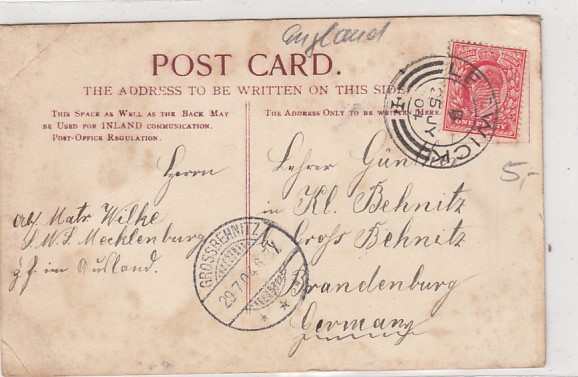 England
POST CARD.
THE ADDRESS TO BE WRITTEN ON THIS SIDE.
THIS SPACE AS WELL AS THE BACK MAY
BE USED FOR INLAND COMMUNICATION.
POST-OFFICE REGULATION.
THE ADDRESS ONLY TO BE WRITTEN HERE.
LERWICK
25 JY
04
GROSSBEHNITZ
29.7.04
5,-
Herrn
Lehrer Gün
in Kl. Behnitz
b. Groß Behnitz
Brandenburg
Germany
Matr Wilke
S.M.S. Mecklenburg
z. Z. im Ausland.